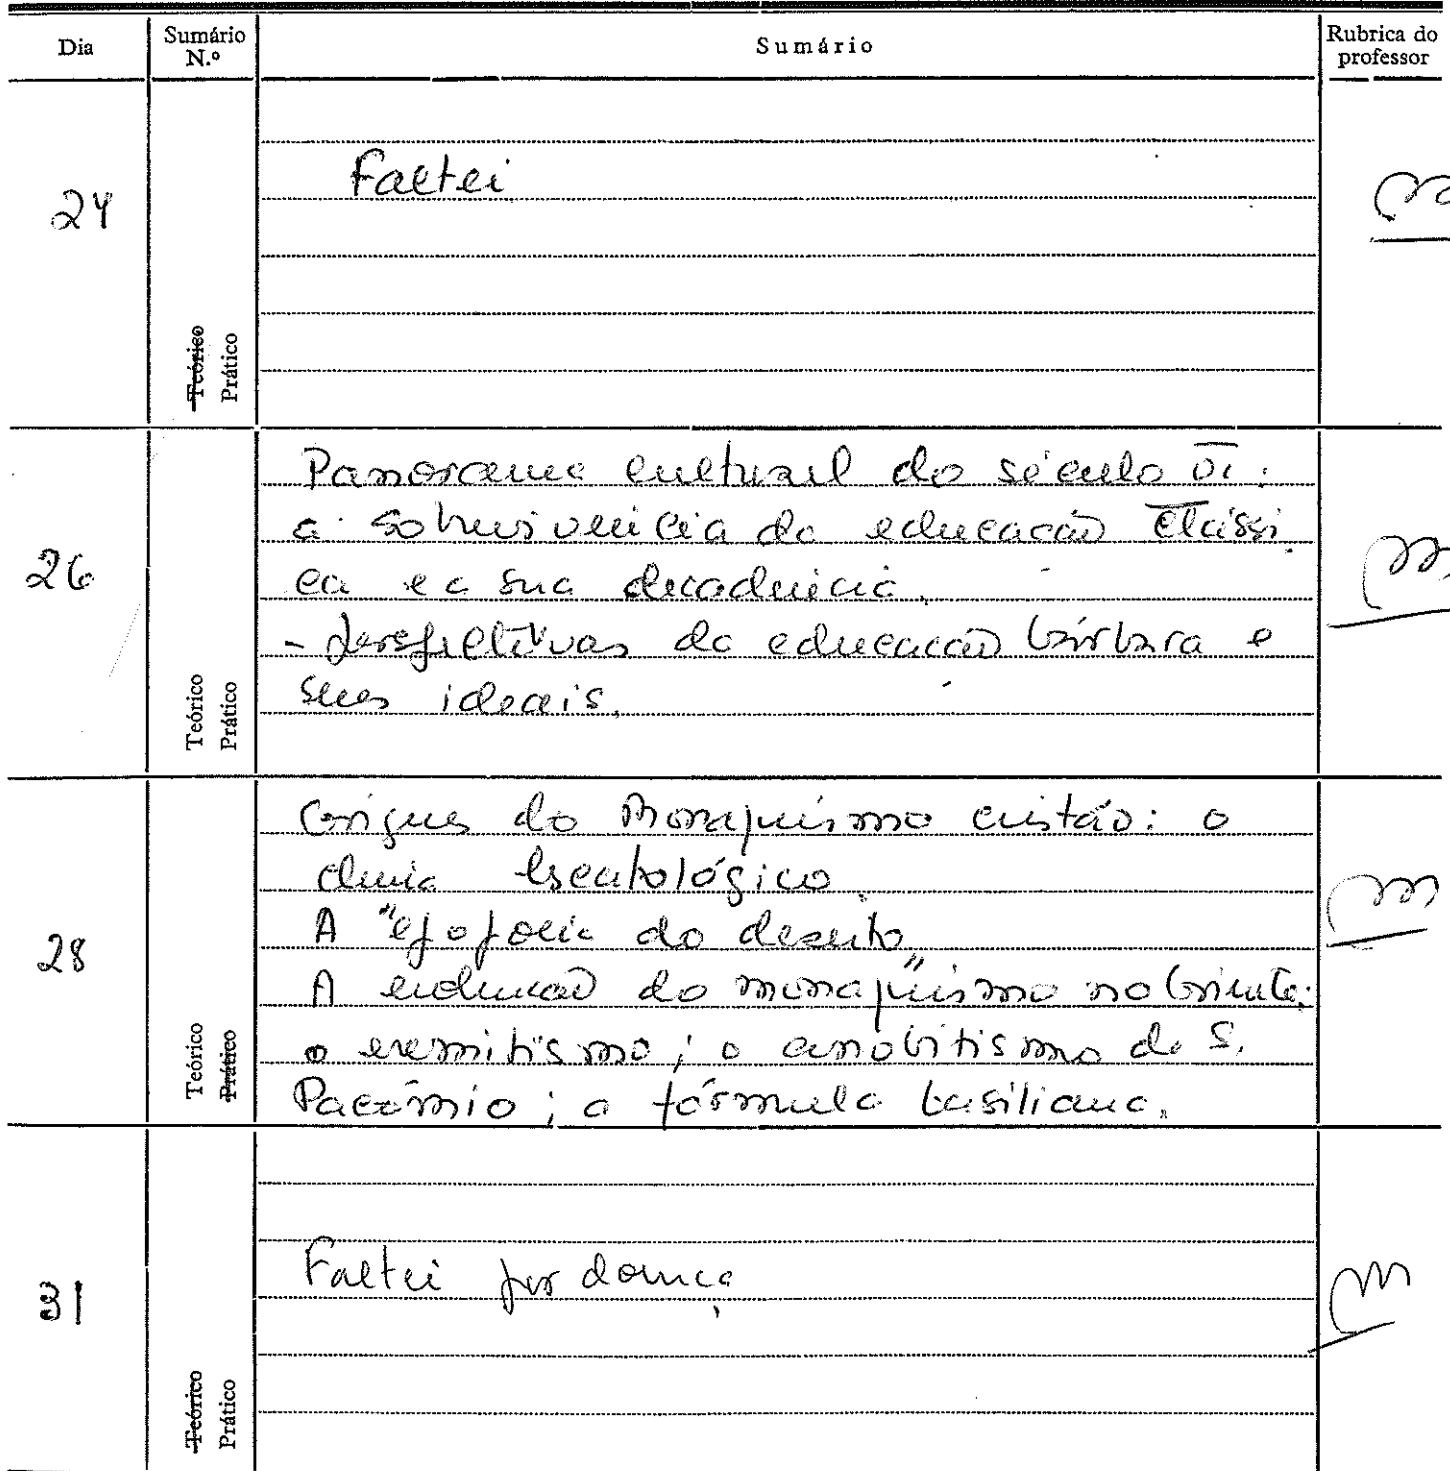 Dia
Sumário N.º
Sumário
Rubrica do professor
24
Teórico
Prático
Faltei
26
Teórico
Prático
Panorama cultural do século VI:
a sobrevivência da educação clássi
ca e a sua decadência.
- perspectivas da educação bárbara e
seus ideais.
28
Teórico
Prático
Origens do Monaquismo cristão: o
clima escatológico.
A "epopeia do deserto"
A evolução do monaquismo no Oriente:
o eremitismo; o cenobitismo de S.
Pacómio; a fórmula basiliana.
31
Teórico
Prático
Faltei por doença